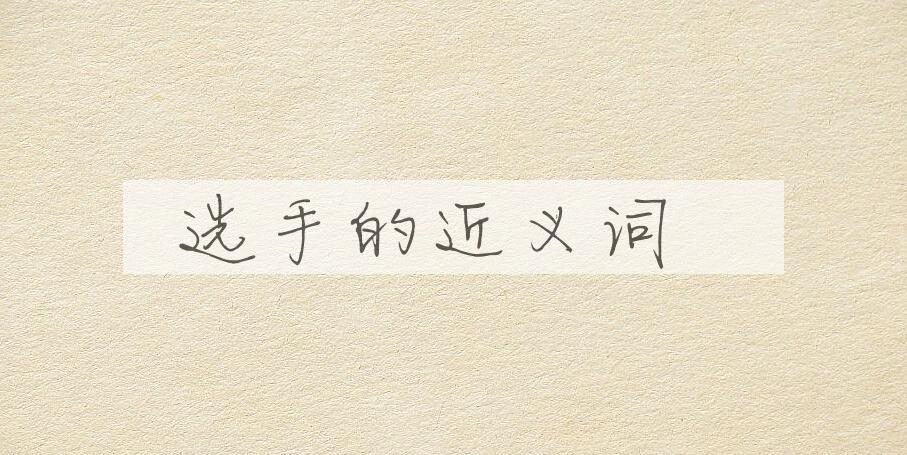 选手的近义词